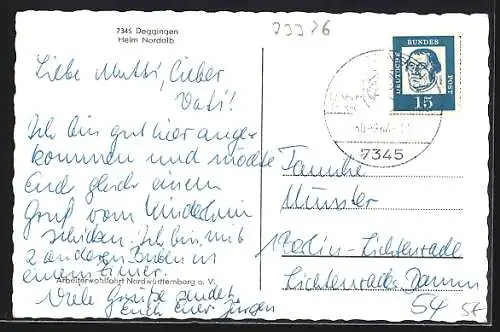 7345 Deggingen
Heim Nordalb
23376
Liebe Mutti, lieber
Vati!
Ich bin gut hier ange
kommen und möchte
Euch gleich einen
Gruß vom Kinderheim
schicken. Ich bin mit
2 anderen Buben in
einem Zimer.
Arbeiterwohlfahrt Nordwürttemberg e. V.
Viele Grüße sendet
euch Euer Jürgen
DEUTSCHE
BUNDES
POST
15
7345
Familie
Münster
Berlin-Lichtenrade
Lichtenrader Damm
54